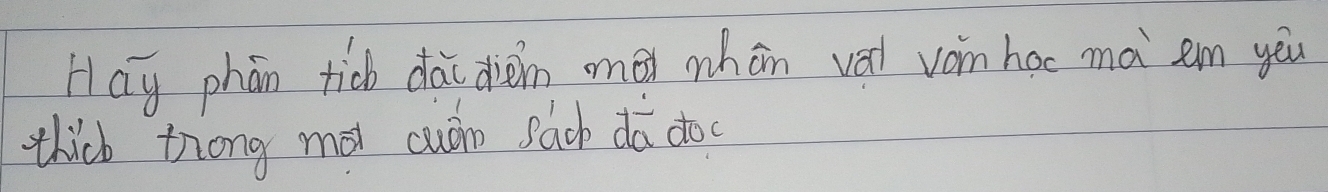 Hãy phân tích đặc điểm một nhân vật văn học mà em yêu
thích trong một cuốn sách đã đọc